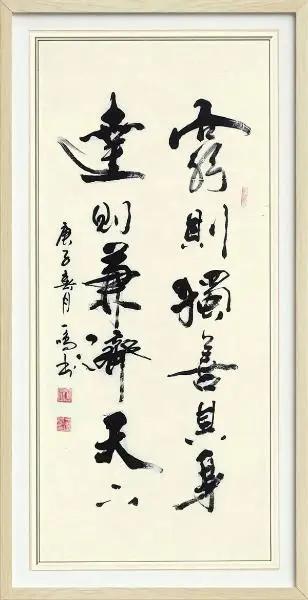 窮則獨善其身
達則兼濟天下
庚子春月一鸣书